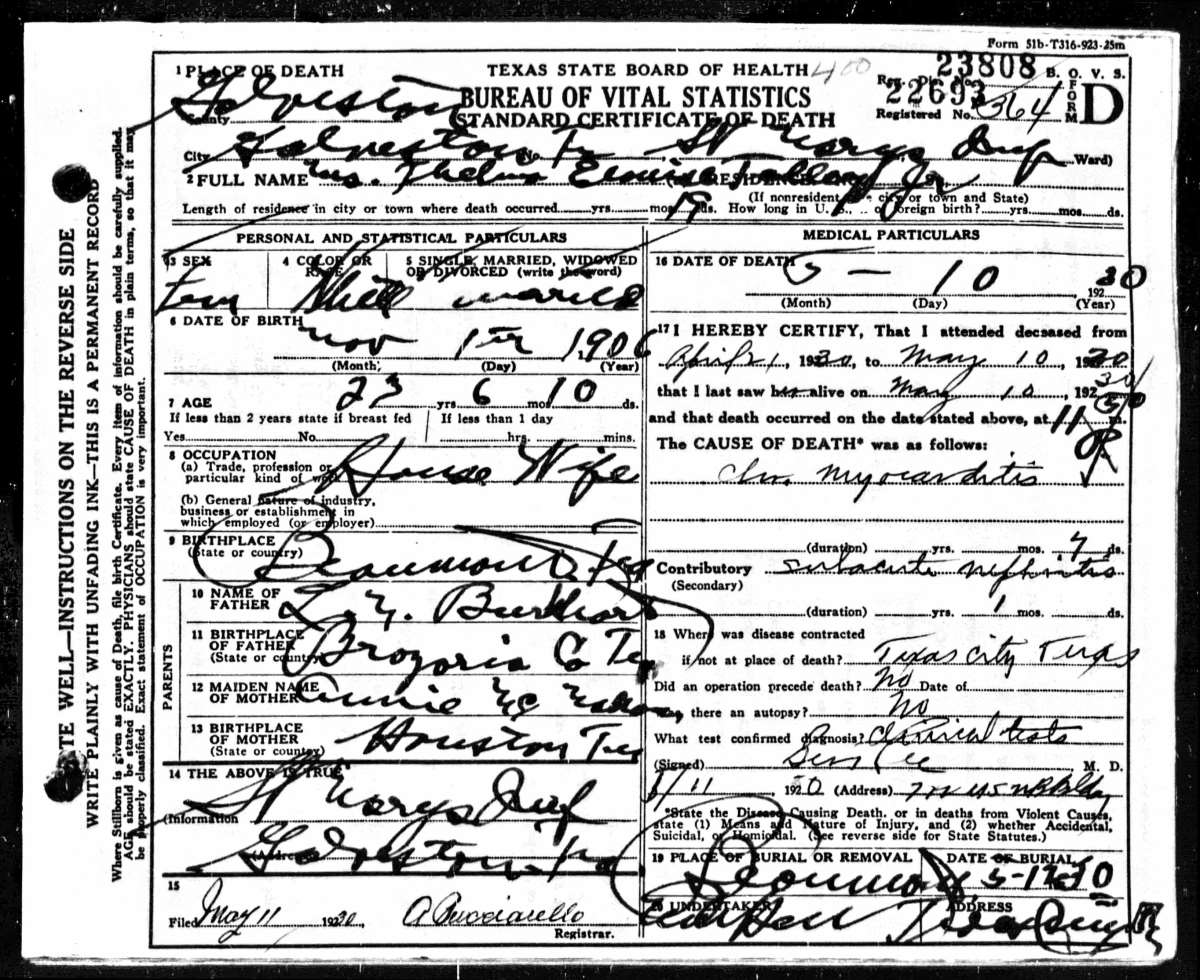 Form 51b-T316-923-25m
1 PLACE OF DEATH
TEXAS STATE BOARD OF HEALTH 400
23808 B. O. V. S.
Galveston
County
BUREAU OF VITAL STATISTICS
Reg. Dis. No. 22693
STANDARD CERTIFICATE OF DEATH
Registered No. 364
FORM D
City Galveston Tx No. St Marys Inf Ward)
2 FULL NAME Mrs. Thelma Jr
RESIDENCE
(If nonresident give city or town and State)
Length of residence in city or town where death occurred yrs. mos. 19 ds. How long in U. S., if of foreign birth? yrs. mos. ds.
PERSONAL AND STATISTICAL PARTICULARS
3 SEX
Fem
4 COLOR OR RACE
White
5 SINGLE, MARRIED, WIDOWED
OR DIVORCED (write the word)
married
6 DATE OF BIRTH
Nov 1st 1906
(Month) (Day) (Year)
7 AGE 23 yrs. 6 mos. 10 ds.
If less than 2 years state if breast fed
Yes No.
If less than 1 day
hrs. mins.
8 OCCUPATION
(a) Trade, profession or
particular kind of work House Wife
(b) General nature of industry,
business or establishment in
which employed (or employer)
9 BIRTHPLACE
(State or country) Beaumont Tex
PARENTS
10 NAME OF
FATHER Burkhart
11 BIRTHPLACE
OF FATHER
(State or country) Brozoria Co Tex
12 MAIDEN NAME
OF MOTHER Annie
13 BIRTHPLACE
OF MOTHER
(State or country) Houston Tex
14 THE ABOVE IS TRUE
(Information St Marys Inf
(Address) Galveston Tex
15
Filed May 11 1930 A Bucciarello
Registrar.
MEDICAL PARTICULARS
16 DATE OF DEATH 5 — 10 1930
(Month) (Day) (Year)
17 I HEREBY CERTIFY, That I attended deceased from
April 21, 1930, to May 10, 1930
that I last saw her alive on May 10, 192 30
and that death occurred on the date stated above, at 11 50 P m.
The CAUSE OF DEATH* was as follows:
Chr. Myocarditis
(duration) yrs. mos. ds.
Contributory subacute nephritis
(Secondary)
(duration) yrs. 1 mos. ds.
18 Where was disease contracted
if not at place of death? Texas City Texas
Did an operation precede death? No Date of
Was there an autopsy? No
What test confirmed diagnosis? Clinical tests
(Signed) M. D.
5/11 1930 (Address)
*State the Disease Causing Death, or in deaths from Violent Causes,
state (1) Means and Nature of Injury, and (2) whether Accidental,
Suicidal, or Homicidal. (See reverse side for State Statutes.)
19 PLACE OF BURIAL OR REMOVAL
Beaumont
DATE OF BURIAL
20 UNDERTAKER
ADDRESS
WRITE WELL—INSTRUCTIONS ON THE REVERSE SIDE
WRITE PLAINLY WITH UNFADING INK—THIS IS A PERMANENT RECORD
Where Stillborn is given as cause of Death, file birth Certificate. Every item of information should be carefully supplied.
AGE should be stated EXACTLY. PHYSICIANS should state CAUSE OF DEATH in plain terms, so that it may
be properly classified. Exact statement of OCCUPATION is very important.